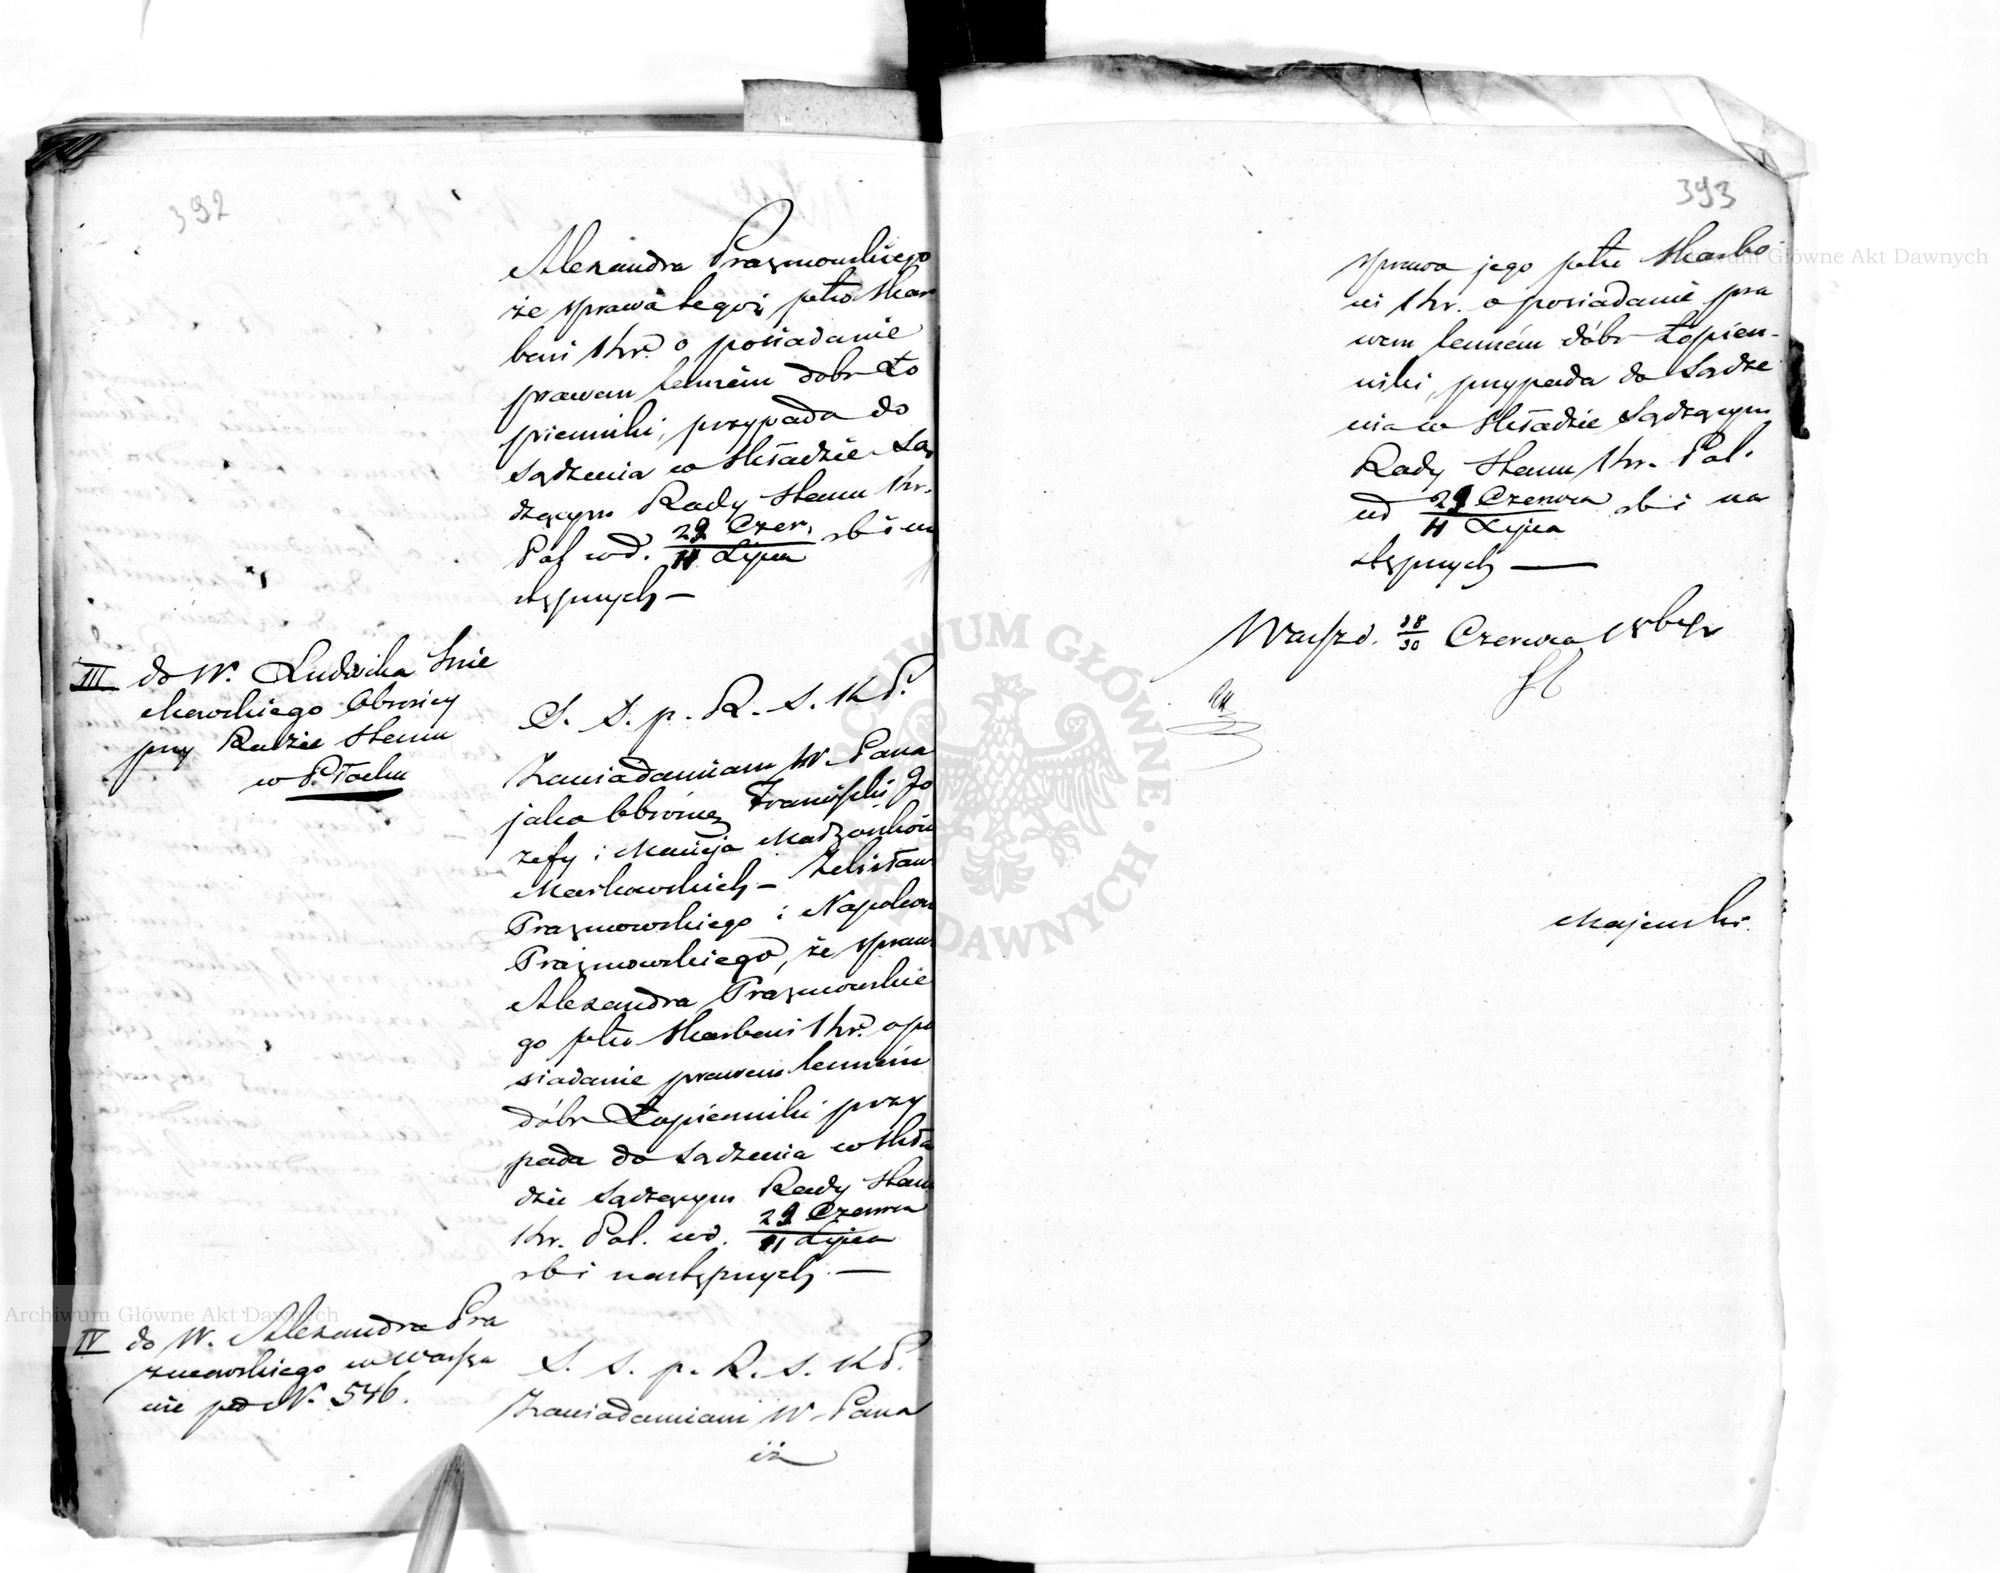 392
Alexandra Prazmowskiego
że sprawa tegoż pko Skar
bowi Kr. o posiadanie
prawem lenném dóbr Ło
pienniki, przypada do
sądzenia w Składzie Są
dzącym Rady Stanu Kr.
Pol w d. 29 Czer. / 11 Lipca rb i na
stępnych –
III do W. Ludwika
Obrońcy
przy Radzie Stanu
w Płocku
S. S. p. R. S. K P.
Zawiadamiam W. Pana
jako Obrońcę Franciszki, Jó
zefy i
Markowskich – Zdzisława
Prazmowskiego i Napoleona
Prazmowskiego, że sprawa
Alexandra Prazmowskie
go pko Skarbowi Kr. o po
siadanie prawem lenném
dóbr Łopienniki przy
pada do sądzenia w Skła
dzie Sądzącym Rady Stanu
Kr. Pol. w d. 29 Czerwca / 11 Lipca
rb i następnych. —
IV do W. Alexandra Pra
zmowskiego w Warsza
wie pod N. 546.
S. S. p. R. S. K P.
Zawiadamiam W Pana
iż
393
sprawa jego pko Skarbo
wi Kr. o posiadanie pra
wem lenném dóbr Łopien-
niki, przypada do Sądze
nia w Składzie Sądzącym
Rady Stanu Kr. Pol.
w d 29 Czerwca / 11 Lipca rb i na
stępnych —
Warsz d. 18/30 Czerwca 186
Majewski
Archiwum Główne Akt Dawnych
ARCHIWUM GŁÓWNE AKT DAWNYCH
Archiwum Główne Akt Dawnych